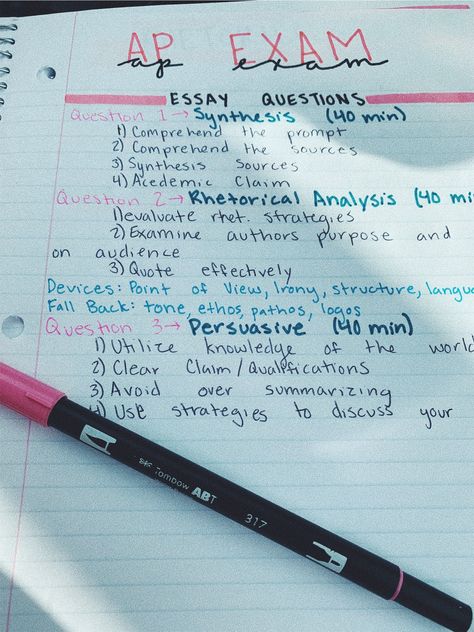 AP EXAM
ap exam
ESSAY QUESTIONS
Question 1 → Synthesis (40 min)
1) Comprehend the prompt
2) Comprehend the sources
3) Synthesis Sources
4) Acedemic Claim
Question 2 → Rhetorical Analysis (40 min
1) evaluate rhet. strategies
2) Examine authors purpose and
on audience
3) Quote effectively
Devices: Point of View, Irony, structure, langu
Fall Back: tone, ethos, pathos, logos
Question 3 → Persuasive (40 min)
1) Utilize knowledge of the world
2) Clear Claim/Qualifications
3) Avoid over summarizing
4) Use strategies to discuss your
Tombow ABT
317